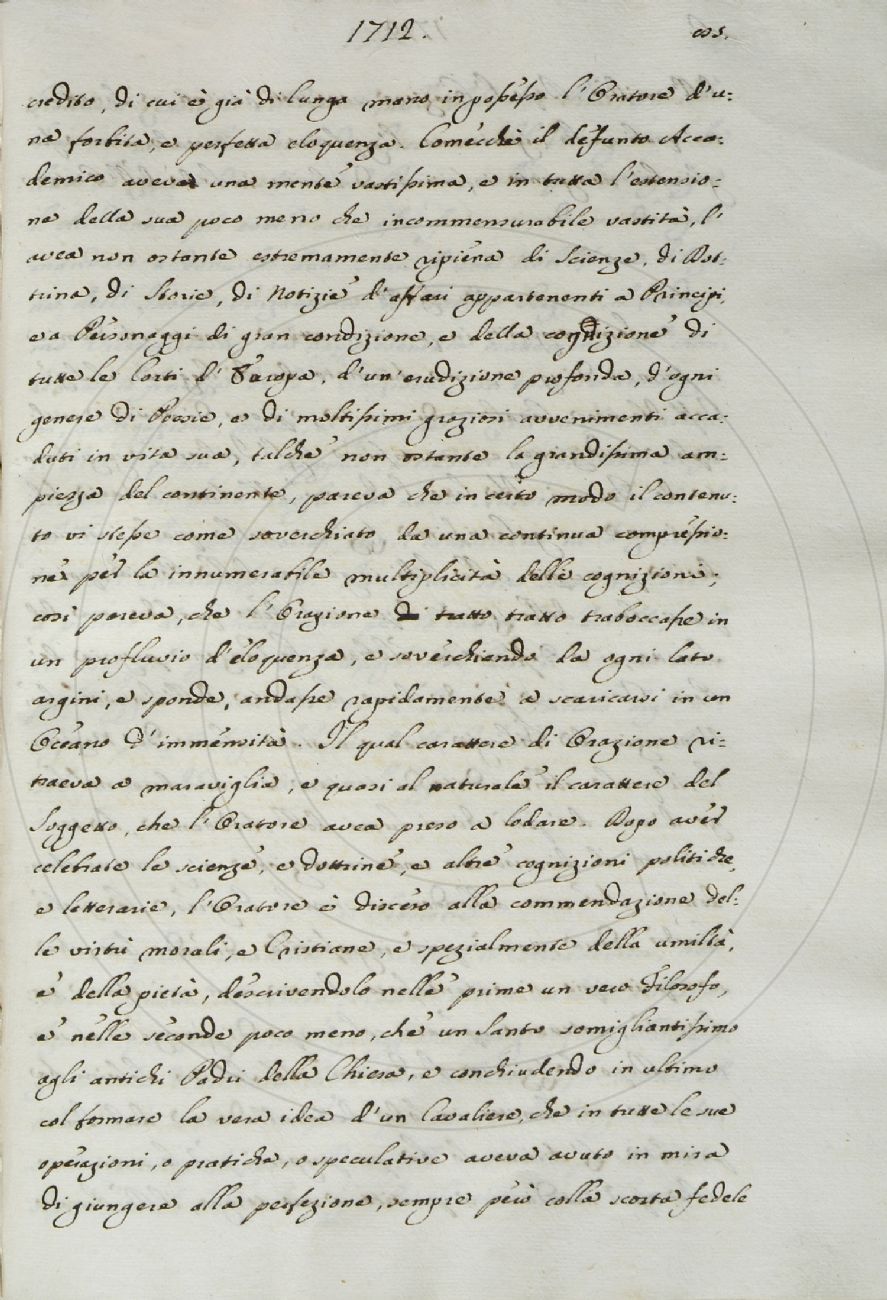 1712.
credito, di cui è già di lunga mano in possesso l'Oratore d'u:
na forbita, e perfetta eloquenza. Comecchè il defunto Acca:
demico aveva una mente vastissima, e in tutta l'estensio:
ne della sua poco meno che incommensurabile vastità, l'
avea non ostante estremamente ripiena di Scienze, di Dot:
trina, di Storie, di Notizie d'affari appartenenti a Principi,
e a Personaggi di gran condizione, e della cognizione di
tutte le Corti d'Europa, d'un'erudizione profonda, d'ogni
genere di Poesie, e di moltissimi graziosi avvenimenti acca:
duti in vita sua, talchè non ostante la grandissima am:
piezza del continente, pareva che in certo modo il contenu:
to vi stesse come soverchiato da una continua compressio:
ne per la innumerabile multiplicità delle cognizioni;
così pareva, che l'Orazione di tratto tratto traboccasse in
un profluvio d'eloquenza, e soverchiando da ogni lato
argini, e sponde, andasse rapidamente a scaricarsi in un
Oceano d'immensità. Il qual carattere di Orazione ri:
traeva a maraviglia, e quasi al naturale il carattere del
Soggetto, che l'Oratore avea preso a lodare. Dopo aver
celebrate le scienze, e dottrine, e altre cognizioni politiche,
e letterarie, l'Oratore è disceso alla commendazione del:
le virtù morali, e Cristiane, e spezialmente della umiltà,
e della pietà, descrivendolo nelle prime un vero Filosofo,
e nelle seconde poco meno, che un Santo somigliantissimo
agli antichi Padri della Chiesa, e conchiudendo in ultimo
col formare la vera idea d'un Cavaliere, che in tutte le sue
operazioni, o pratiche, o speculative aveva avuto in mira
di giungere alla perfezione, sempre però colla scorta fedele